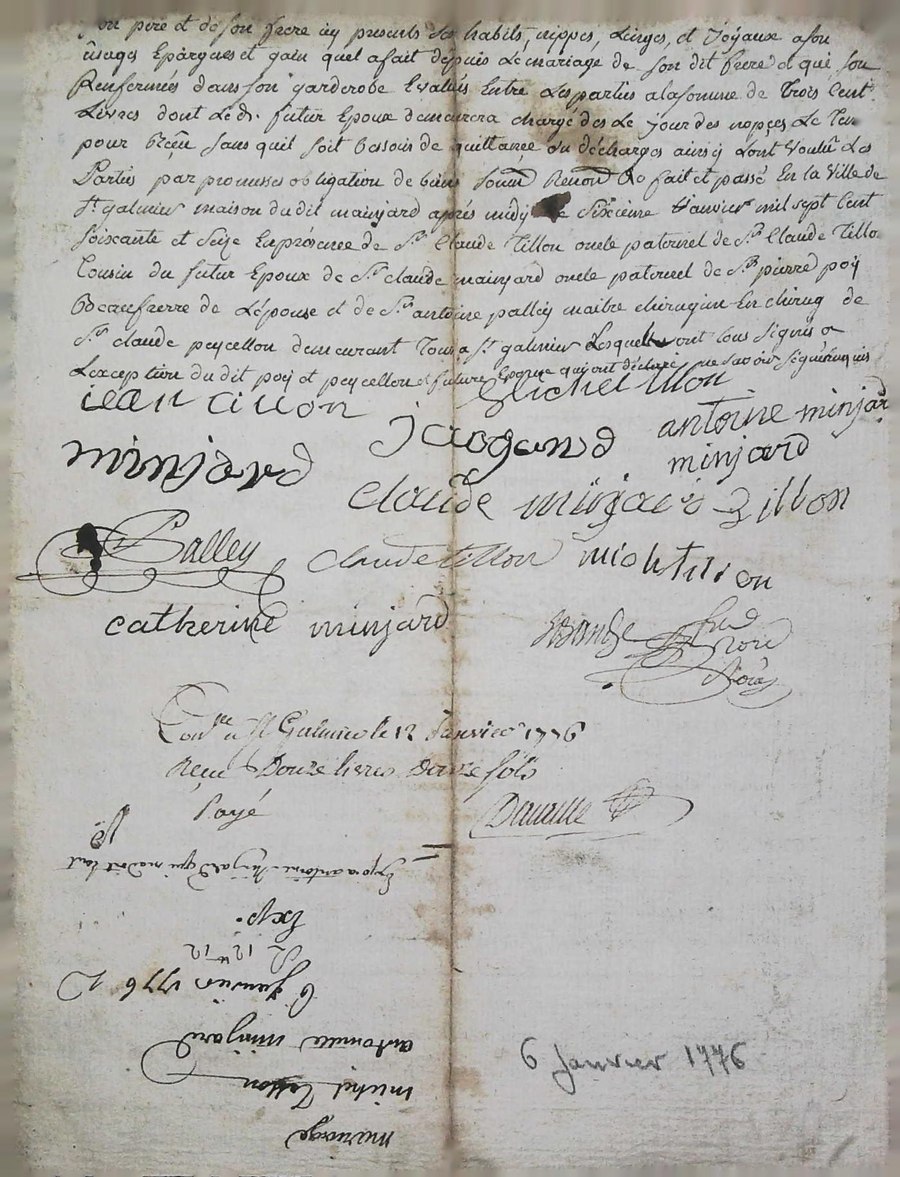 son pere et de son frere icy presents ses habits, nippes, Linges, et Joyaux a son
usages Epargnes et gain quel a fait depuis Le mariage de son dit frere et qui son
Renfermées dans son garderobe Evalués Entre Les parties a la somme de Trois Cent
Livres dont Le dt. futur Epoux demeurera chargé des Le jour des nopçes Le
pour sans quil soit Besoins de quittance ou décharges ainsi Lont Voulu Les
Parties par promesses obligation de biens soum Renon & fait et passé En la Ville de
St. galmier maison du dit minjard aprés midy Le Sixieme Janvier mil sept Cent
soixante et Seize En présence de Sr. Claude Tillon oncle paternel de Sr. Claude Tillo
Cousin du futur Epoux de Sr. claude mainjard oncle paternel de Sr. pierre poy
Beaufrerre de Lépouse et de Sr. antoine palley maitre chirugien En chirug de
Sr. claude peycellon demeurant Tous a St. galmier Lesquels ont tous signés a
Lexception du dit poy et peycellon et future Epouse qui ont déclaré ne savoir signé
jean tillon michel tillon
minjard antoine minjard
minjard
claude minjard tillon
Palley claude tillon mich tillon
catherine minjard
Conlle a St Galmier le 12 Janvier 1776
Reçu Douze livres Douze sols
Payé
Exp. a antoine minjard qui
Exp.
12 tt 12
6 Janvier 1776
antoinette minjard
michel Tillon
mariage
6 Janvier 1776